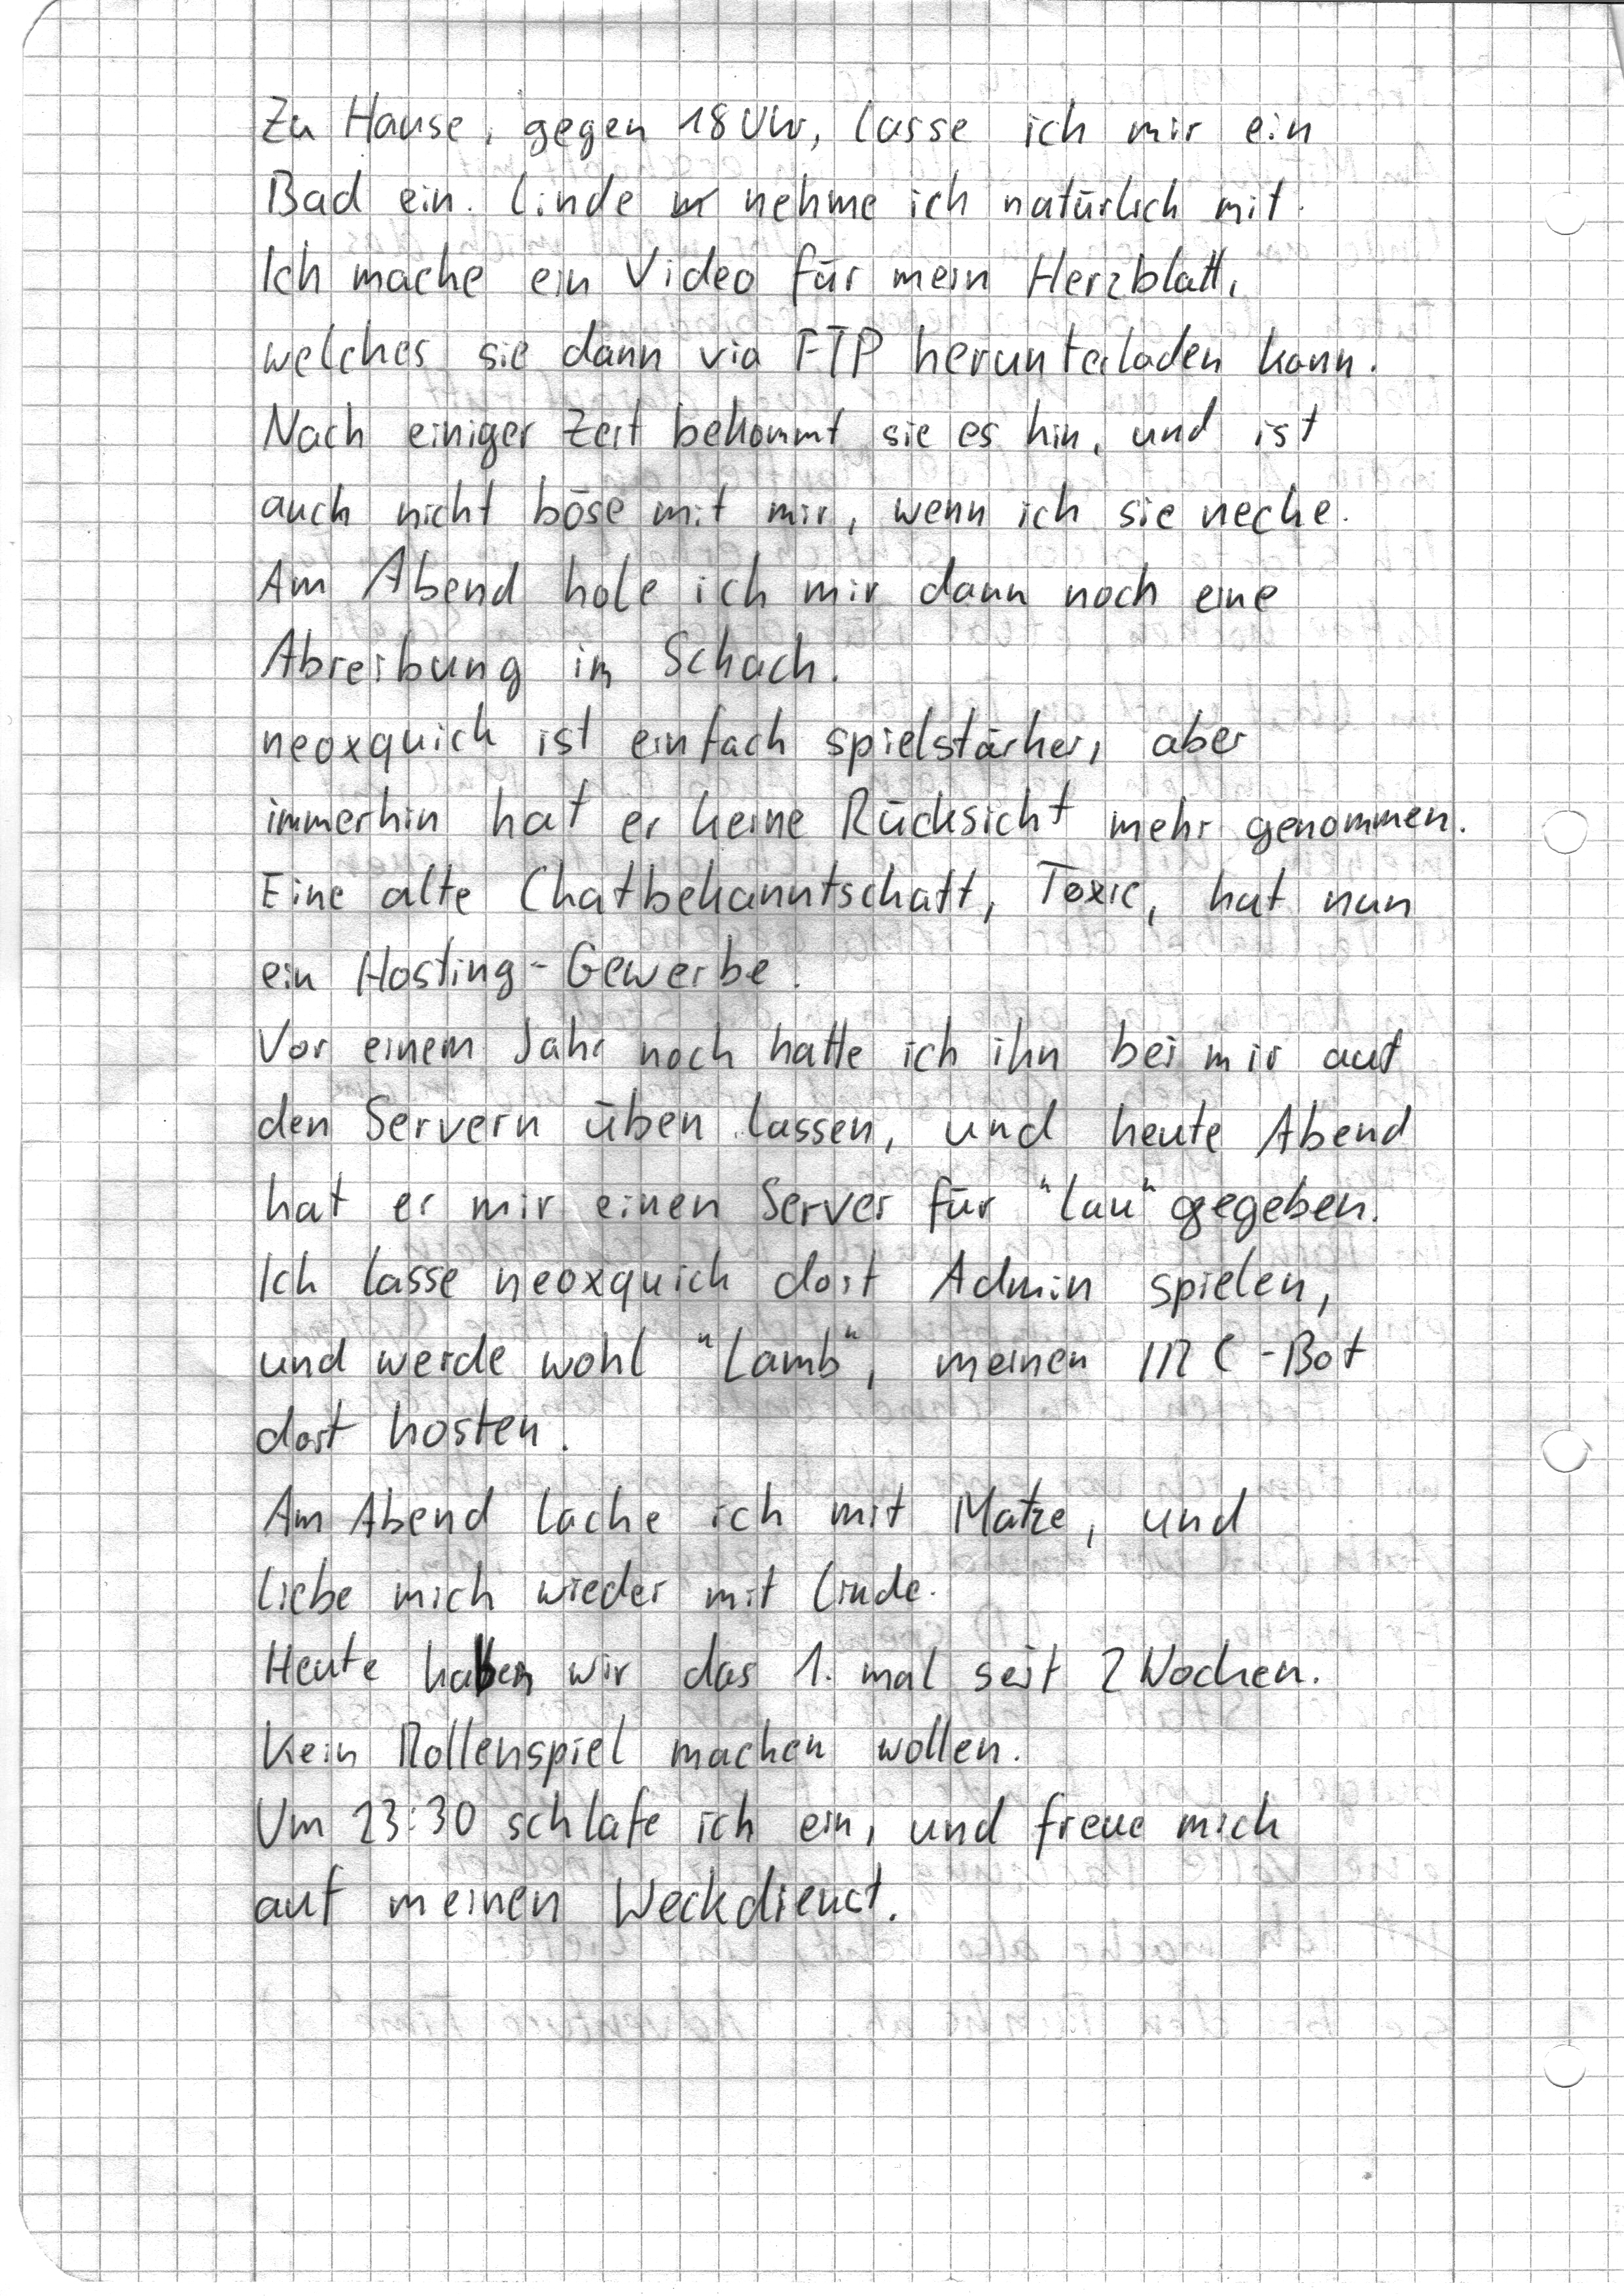 Zu Hause, gegen 18 Uhr, lasse ich mir ein
Bad ein. Linde nehme ich natürlich mit.
Ich mache ein Video für mein Herzblatt,
welches sie dann via FTP herunterladen kann.
Nach einiger Zeit bekommt sie es hin, und ist
auch nicht böse mit mir, wenn ich sie necke.
Am Abend hole ich mir dann noch eine
Abreibung im Schach.
neoxquick ist einfach spielstärker, aber
immerhin hat er keine Rücksicht mehr genommen.
Eine alte Chatbekanntschaft, Toxic, hat nun
ein Hosting-Gewerbe.
Vor einem Jahr noch hatte ich ihn bei mir auf
den Servern üben lassen, und heute Abend
hat er mir einen Server für "lau" gegeben.
Ich lasse neoxquick dort Admin spielen,
und werde wohl "Lamb", meinen IRC-Bot
dort hosten.
Am Abend lache ich mit Matze, und
liebe mich wieder mit Linde.
Heute haben wir das 1. mal seit 2 Wochen.
Kein Rollenspiel machen wollen.
Um 23:30 schlafe ich ein, und freue mich
auf meinen Weckdienst.